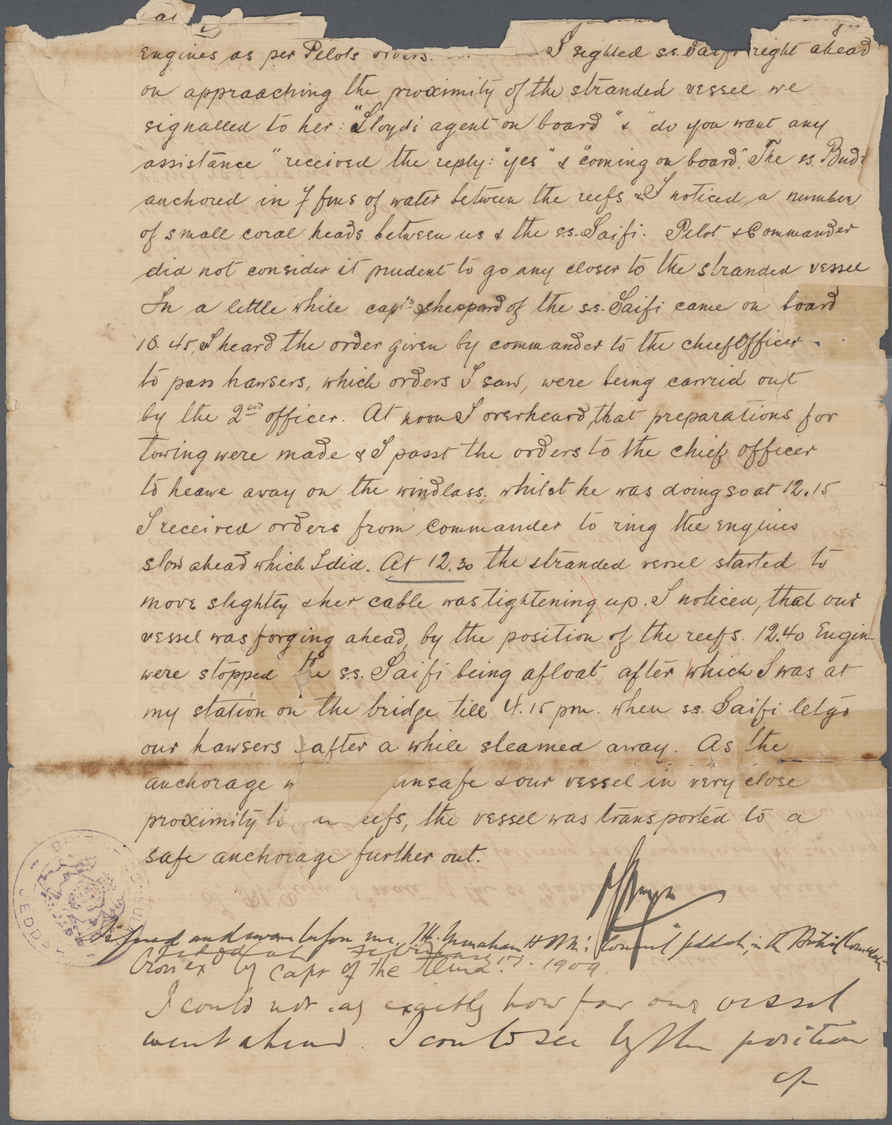 as
Engines as per Pilots orders. I sighted ss. Saifi right ahead
on appraaching the proximity of the stranded vessel we
signalled to her: "Lloyd's agent on board" & "do you want any
assistance" received the reply: "yes" & "coming on board". The ss. Bud
anchored in 7 fms of water between the reefs & I noticed a number
of small coral heads between us & the ss. Saifi. Pilot & Commander
did not consider it prudent to go any closer to the stranded vessel
In a little while capt. Sheppard of the ss. Saifi came on board
10.45, I heard the order given by commander to the chief Officer
to pass hawsers, which orders I saw, were being carried out
by the 2nd officer. At noon I overheard, that preparations for
towing were made & I passt the orders to the chief officer
to heawe away on the windlass, whilst he was doing so at 12.15
I received orders from commander to ring the engines
slow ahead which I did. At 12.30 the stranded vessel started to
move slightly & her cable was tightening up. I noticed, that our
vessel was forging ahead, by the position of the reefs. 12.40 Engin
were stopped the ss. Saifi being afloat after which I was at
my station on the bridge till 4.15 pm. when ss. Saifi let go
our hawsers & after a while steamed away. As the
anchorage unsafe & our vessel in very close
proximity to eefs, the vessel was transported to a
safe anchorage further out.
JEDDA
CONSUL
Signed and sworn before me, Monahan H.B.M's Consul Jeddah, in the British Consulate
Cross ex by capt of the 1909.
I could not say exactly how far our vessel
went ahead. I could see by the position
of